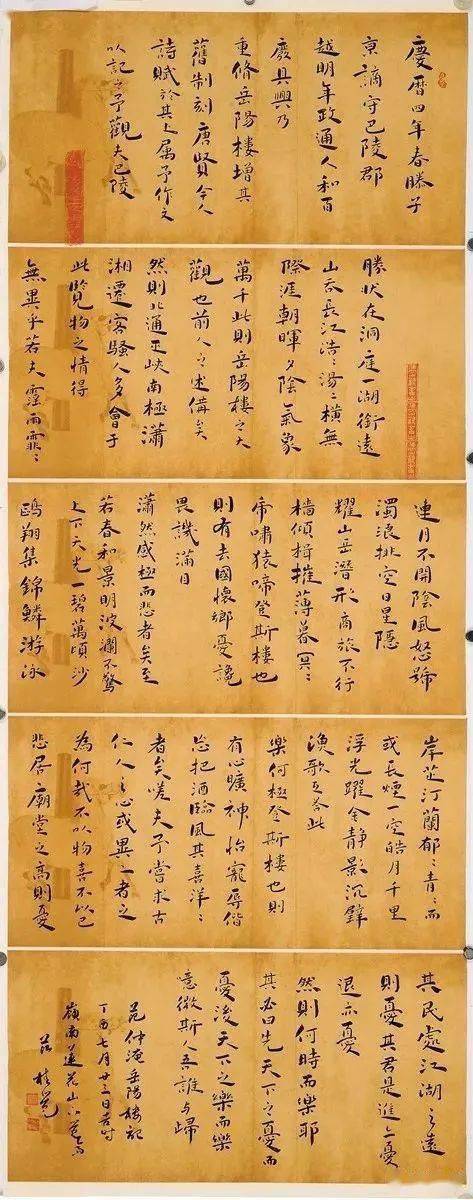 慶曆四年春滕子
京謫守巴陵郡
越明年政通人和百
廢具興乃
重脩岳陽樓增其
舊制刻唐賢今人
詩賦於其上属予作文
以記之予觀夫巴陵
勝状在洞庭一湖銜遠
山吞長江浩〻湯〻橫無
際涯朝暉夕陰氣象
萬千此則岳陽樓之大
觀也前人之述備矣
然則北通巫峽南極瀟
湘遷客騷人多會于
此覽物之情得
無異乎若夫淫雨霏〻
連月不開陰風怒號
濁浪排空日星隱
耀山岳潛形商旅不行
檣傾楫摧薄暮冥〻
虎嘯猿啼登斯樓也
則有去國懷鄉憂讒
畏譏滿目
瀟然感極而悲者矣至
若春和景明波瀾不驚
上下天光一碧萬頃沙
鷗翔集錦鱗游泳
岸芷汀蘭郁〻青〻而
或長煙一空皓月千里
浮光躍金静影沉璧
漁歌互答此
樂何極登斯樓也則
有心曠神怡寵辱偕
忘把酒臨風其喜洋〻
者矣嗟夫予嘗求古
仁人之心或異二者之
為何哉不以物喜不以己
悲居廟堂之高則憂
其民處江湖之遠
則憂其君是進亦憂
退亦憂
然則何時而樂耶
其必曰先天下之憂而
憂後天下之樂而樂
噫微斯人吾誰与歸
范仲淹岳陽樓記
丁酉七月廿三日書於
嶺南蓮花山